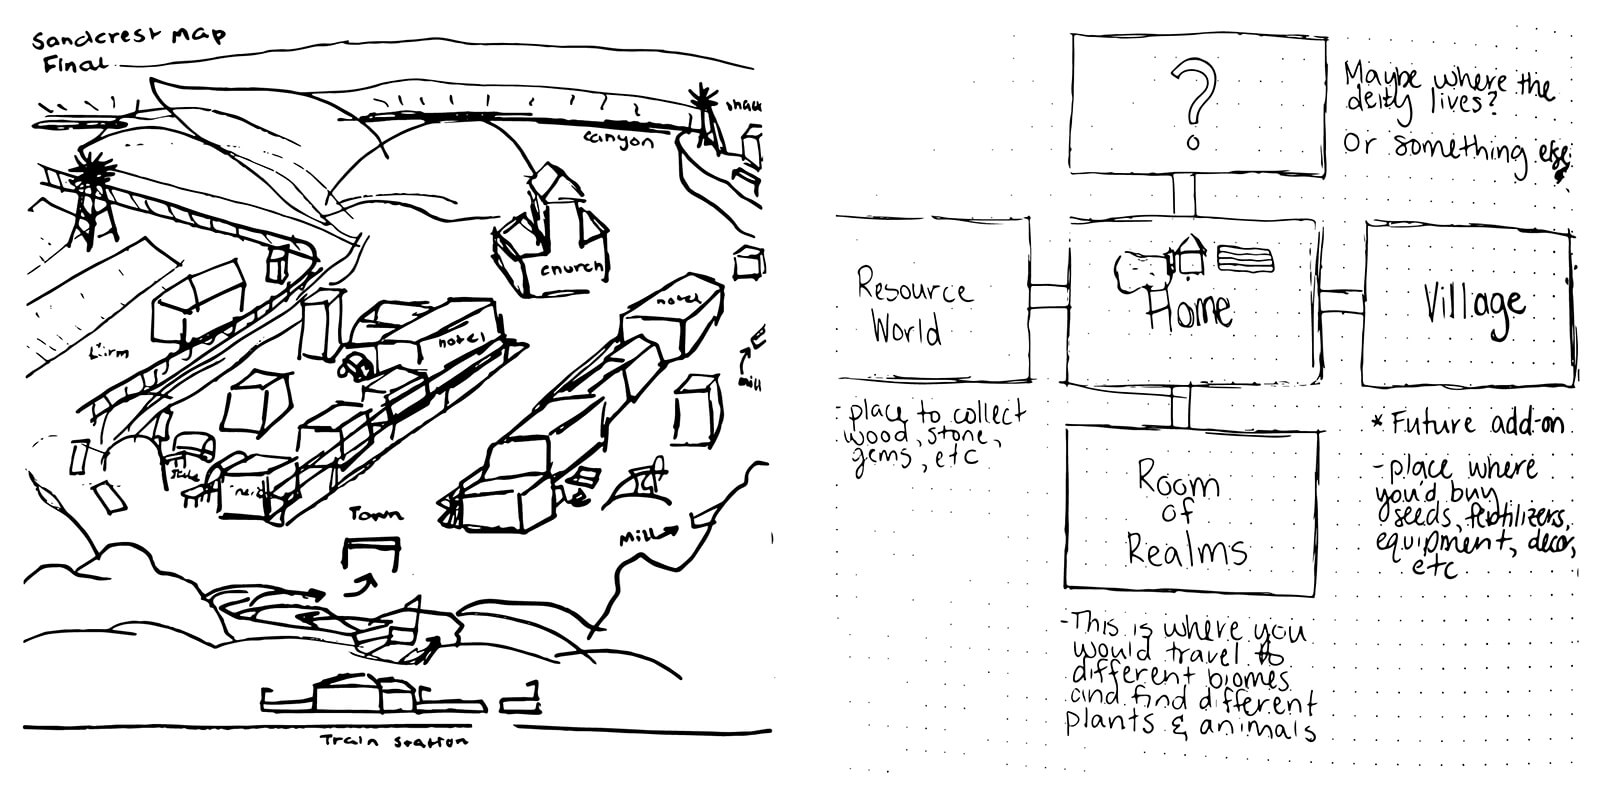 Sandcrest Map
Final
canyon
church
hotel
hotel
mill
Town
Mill
Train station
?
Maybe where the
deity lives?
Or something else
Resource
World
Home
Village
- place to collect
wood, stone,
gems, etc
* Future add-on
- place where
you'd buy
seeds, fertilizers,
equipment, decor,
etc
Room
of
Realms
- This is where you
would travel to
different biomes
and find different
plants & animals